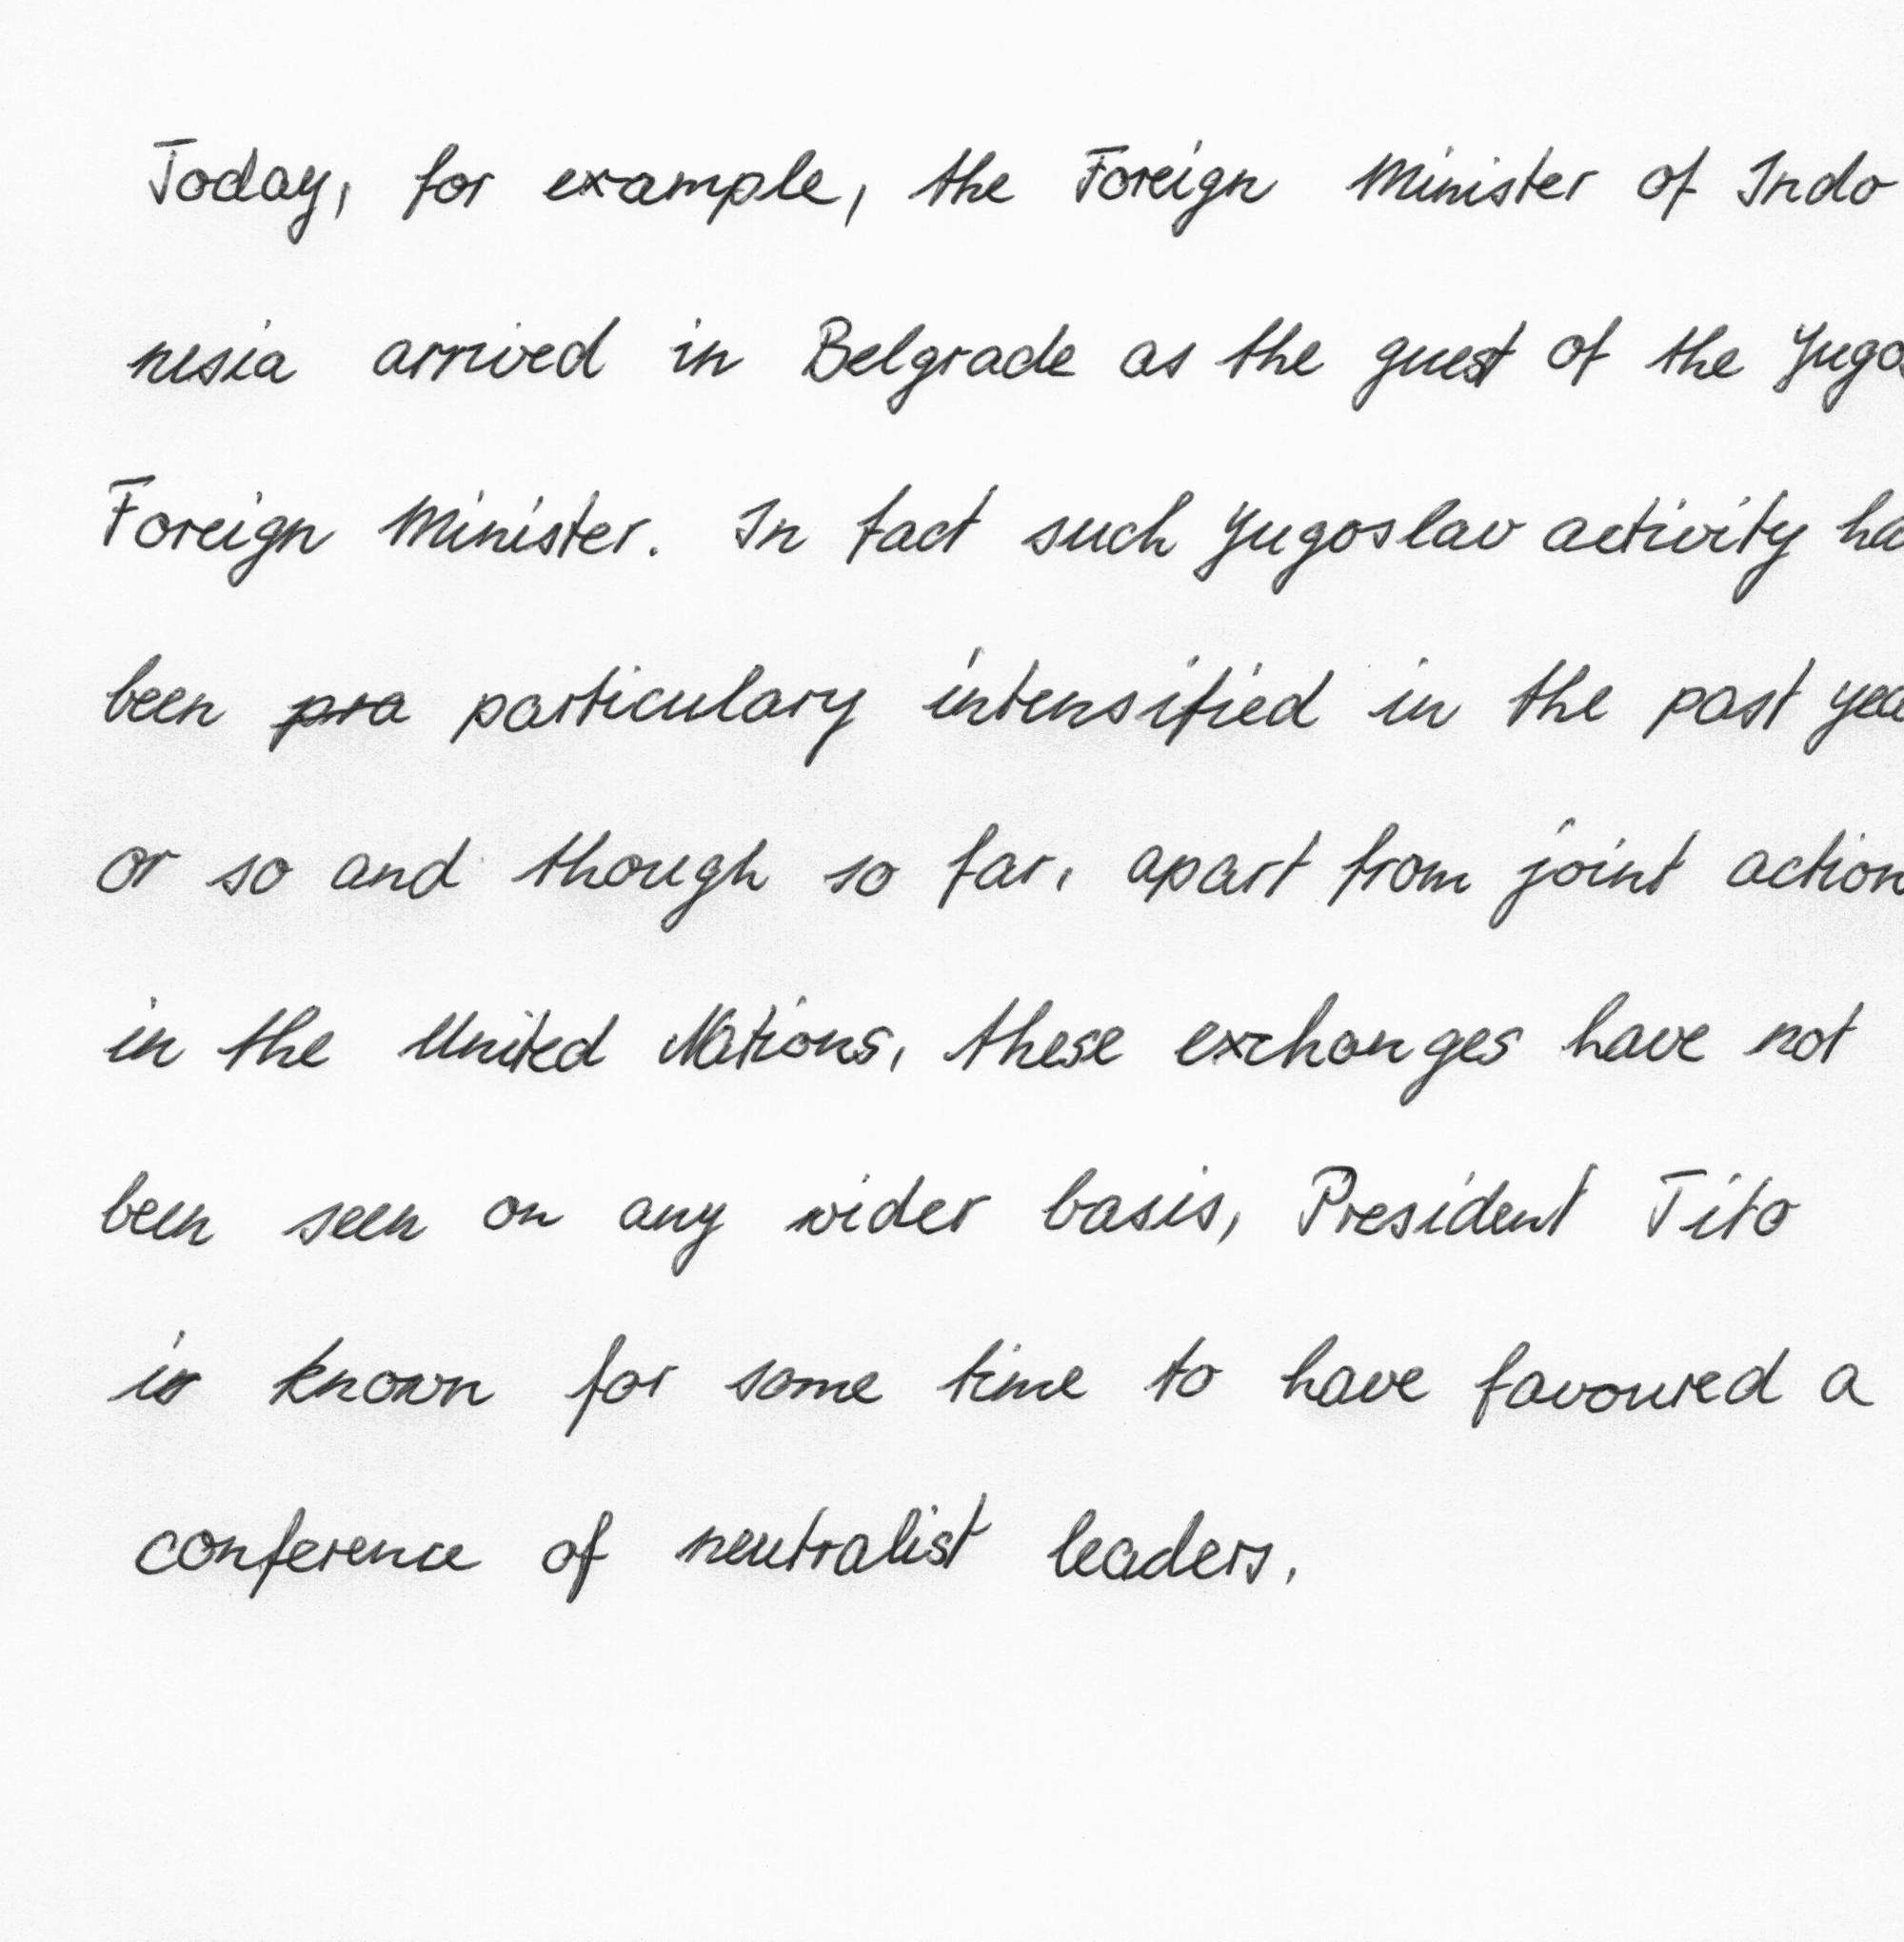 Today, for example, the Foreign Minister of Indo
nesia arrived in Belgrade as the guest of the Yugos
Foreign Minister. In fact such Yugoslav activity ha
been pra particulary intensified in the past yea
or so and though so far, apart from joint action
in the United Nations, these exchanges have not
been seen on any wider basis, President Tito
is known for some time to have favoured a
conference of neutralist leaders.